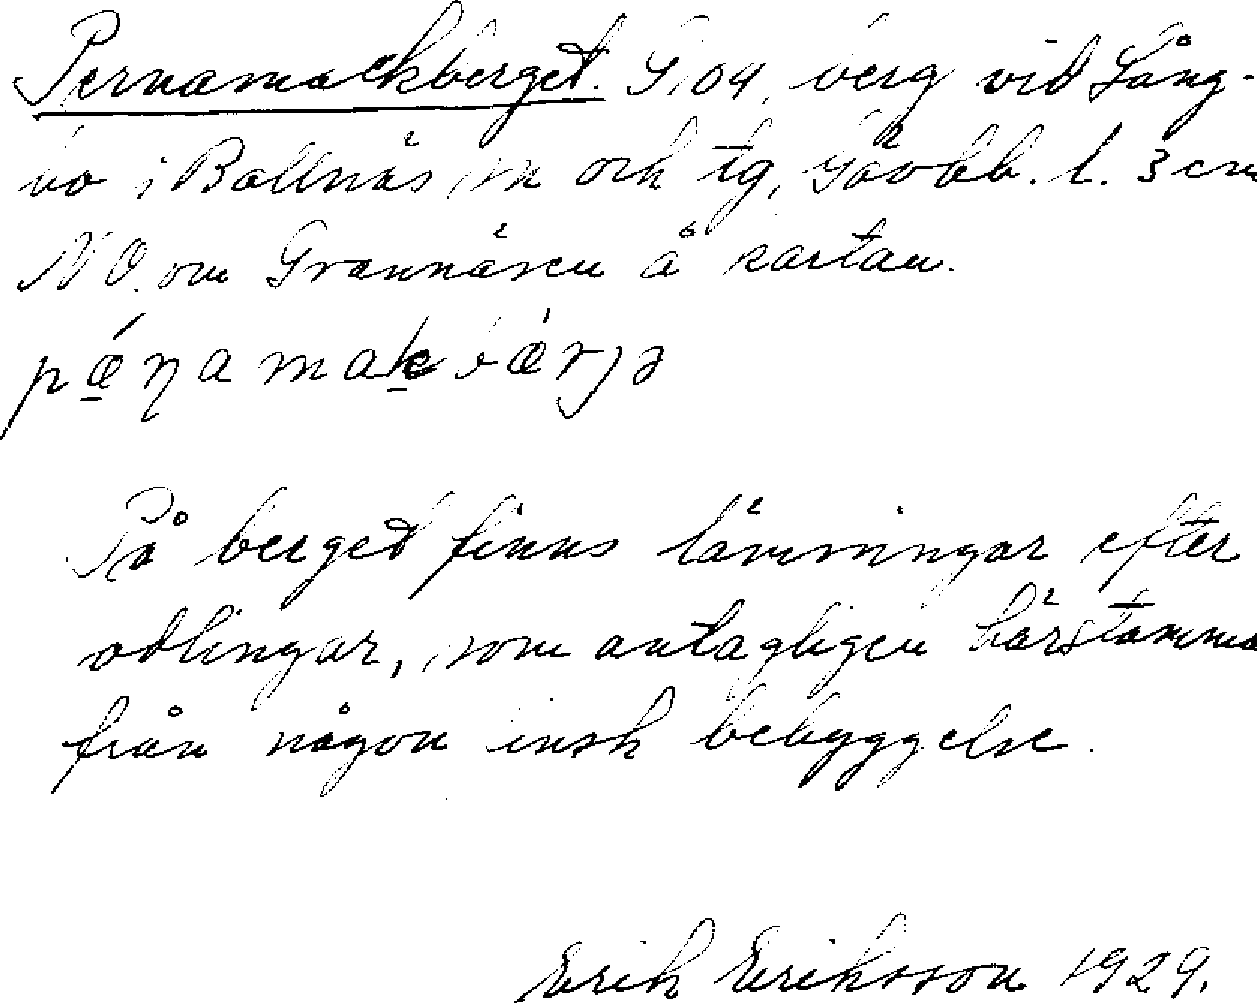 Pernamackberget. G. 104, berg vid Lång-
bo i Bollnäs sn och tg, Gävlebb. l. 3 cm
NO. om Grannäsen å kartan.
pǽṇamakbǽrjə
På berget finns lämningar efter
odlingar, som antagligen härstamma
från någon finsk bebyggelse.
Erik Eriksson 1929.